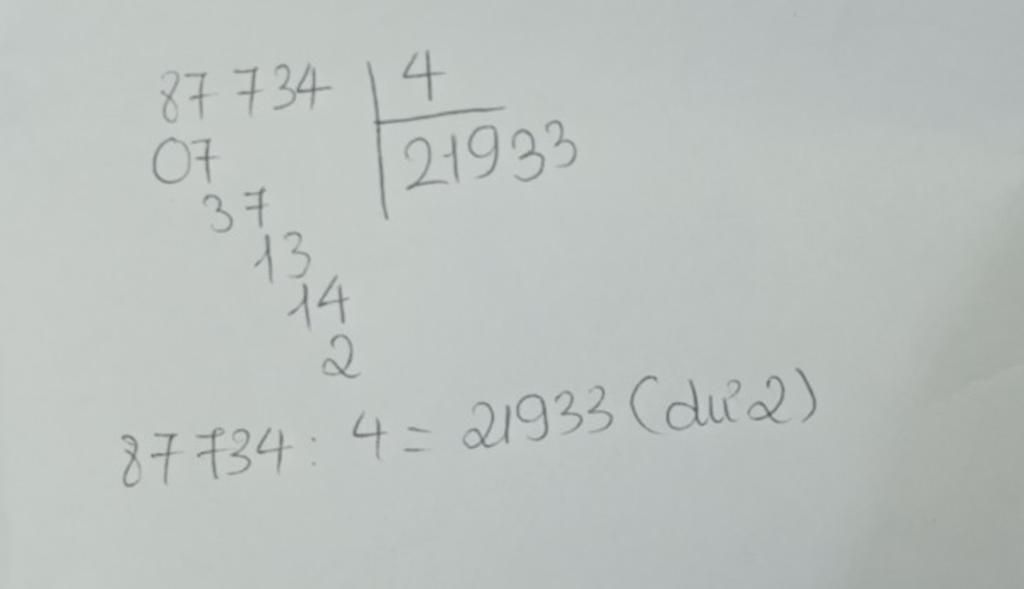 87 734 | 4
07 | 21933
37
13
14
2
87 734 : 4 = 21933 (dư 2)